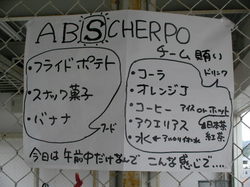 ABSCHERPO
チーム賄い
・フライドポテト
・スナック菓子
・バナナ
フード
ドリンク
・コーラ
・オレンジJ
・コーヒー アイス or ホット
・アクエリアス
・水
日本茶
紅茶
今日は午前中だけなんで こんな感じで・・・・